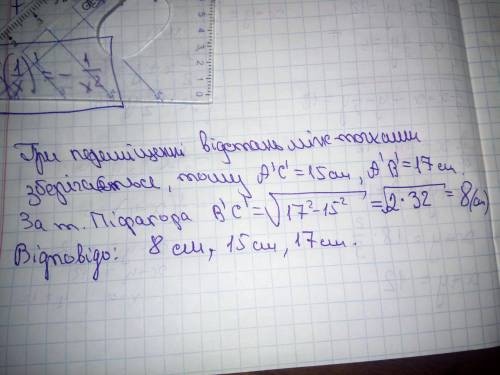 (1/x)' = - 1/x²
При переміщенні відстань між точками
зберігається, тому A'C' = 15 см, A'B' = 17 см.
За т. Піфагора B'C' = √17²-15² = √2·32 = 8 (см)
Відповідь: 8 см, 15 см, 17 см.